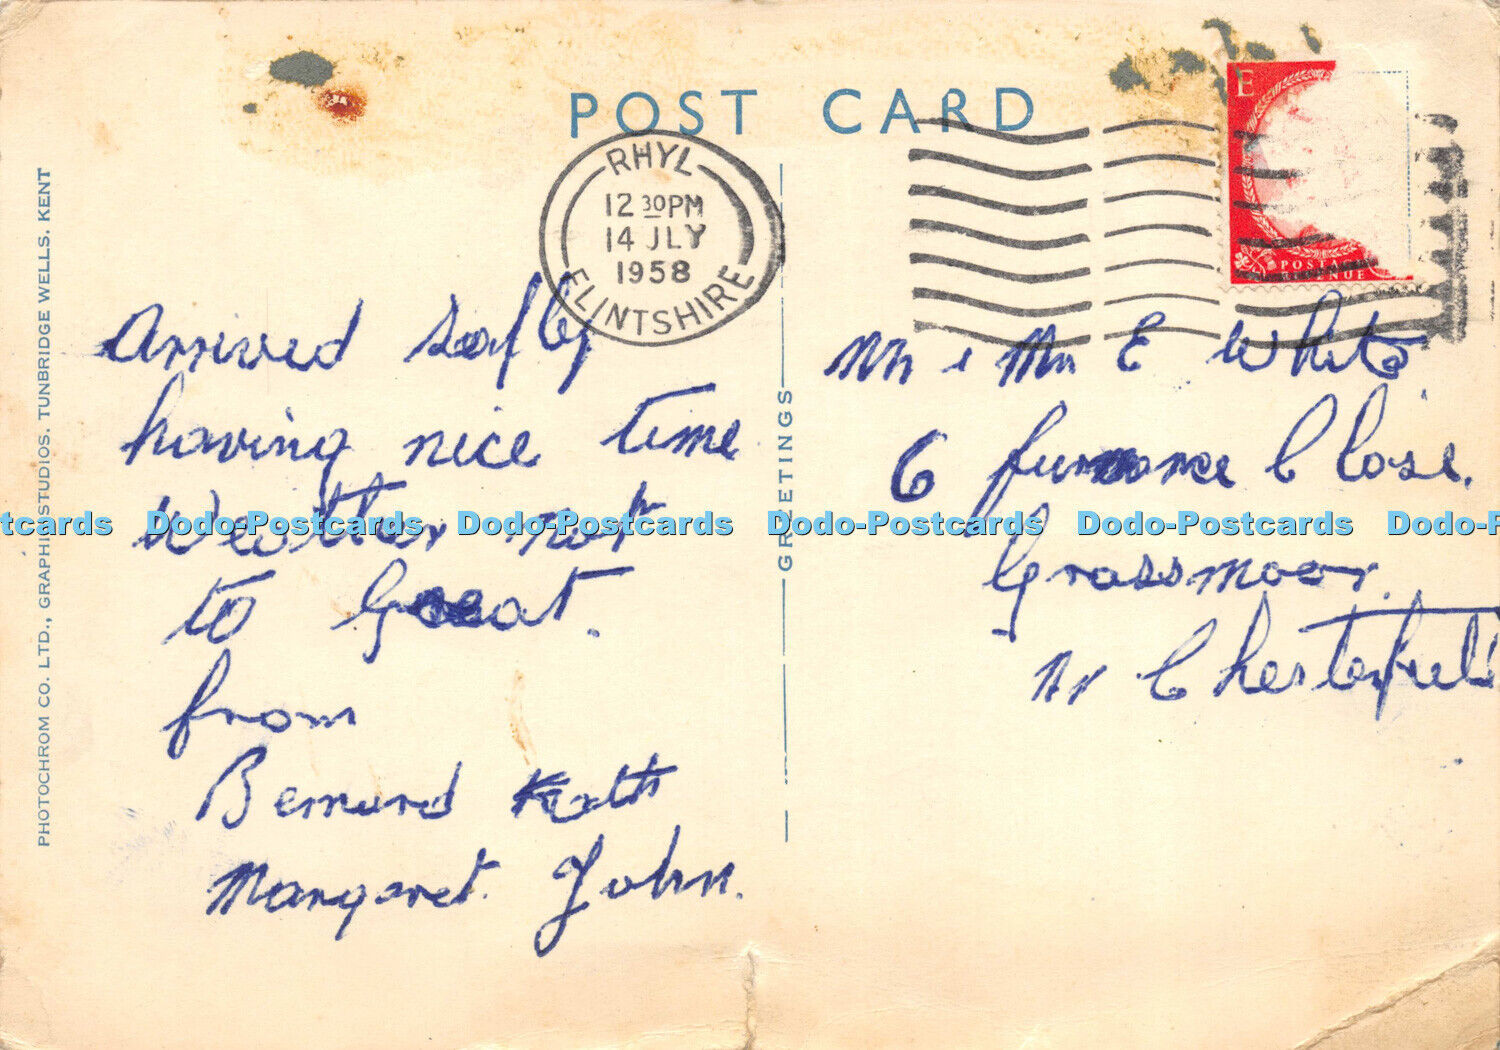 POST CARD
RHYL
12 30PM
14 JLY
1958
FLINTSHIRE
E
POSTAGE
Arrived safly
having nice time
weather not
to Great.
from
Bernard Kath
Margaret. John.
GREETINGS
Mr & Mrs E White
6 furnance Close.
Grassmoor.
Nr Chesterfield
PHOTOCHROM CO. LTD., GRAPHIC STUDIOS, TUNBRIDGE WELLS, KENT
tcards Dodo-Postcards Dodo-Postcards Dodo-Postcards Dodo-Postcards Dodo-P